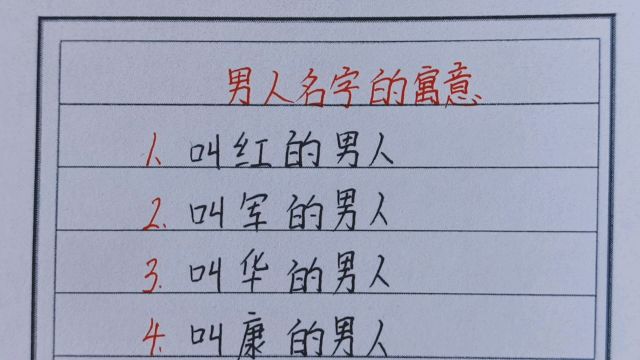 男人名字的寓意
1. 叫红的男人
2. 叫军的男人
3. 叫华的男人
4. 叫康的男人